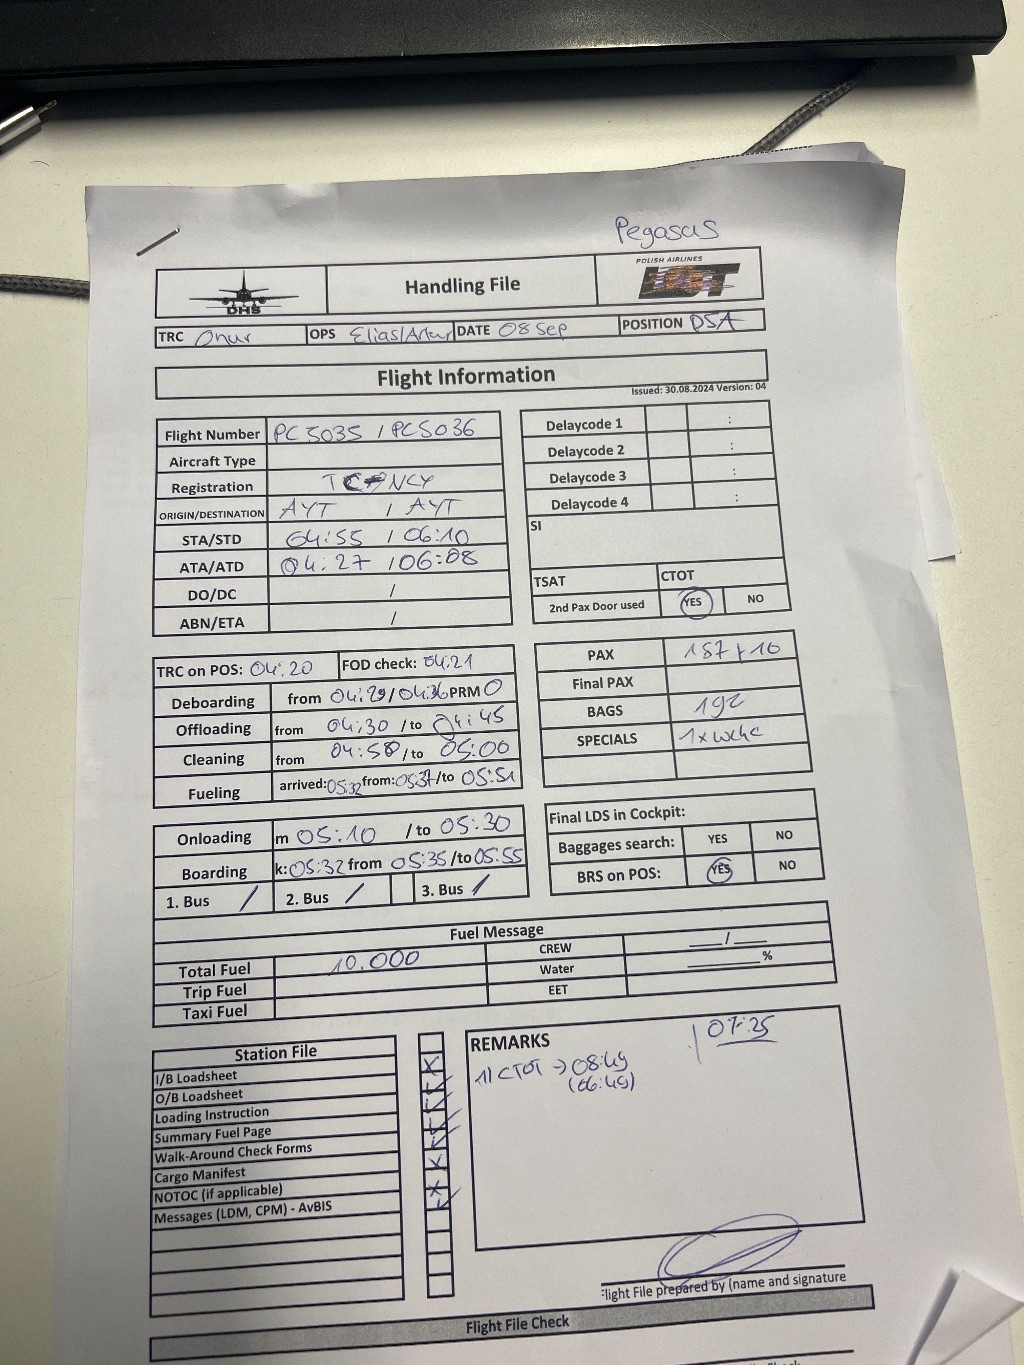 Pegasus
DHS Handling File POLISH AIRLINES LOT
TRC Onur OPS Elias/Artur DATE 08 Sep POSITION D5A
Flight Information
Issued: 30.08.2024 Version: 04
Flight Number PC5035 / PC5036
Aircraft Type
Registration TC-NCY
ORIGIN/DESTINATION AYT / AYT
STA/STD 04:55 / 06:10
ATA/ATD 04:27 / 06:08
DO/DC /
ABN/ETA /
Delaycode 1 :
Delaycode 2 :
Delaycode 3 :
Delaycode 4 :
SI
TSAT CTOT
2nd Pax Door used YES NO
TRC on POS: 04:20 FOD check: 04:21
Deboarding from 04:29/04:36 PRM 0
Offloading from 04:30 /to 04:45
Cleaning from 04:58 /to 05:00
Fueling arrived: 05:32 from: 05:37 /to 05:51
PAX 187+10
Final PAX
BAGS 192
SPECIALS 1x wchc
Onloading m 05:10 /to 05:30
Boarding k: 05:32 from 05:35 /to 05:55
1. Bus / 2. Bus / 3. Bus /
Final LDS in Cockpit:
Baggages search: YES NO
BRS on POS: YES NO
Fuel Message
Total Fuel 10.000 CREW ___/___
Trip Fuel Water ______%
Taxi Fuel EET
Station File
I/B Loadsheet
O/B Loadsheet
Loading Instruction
Summary Fuel Page
Walk-Around Check Forms
Cargo Manifest
NOTOC (if applicable)
Messages (LDM, CPM) - AvBIS
REMARKS 07:25
1) CTOT → 08:49
(06:49)
Flight File prepared by (name and signature
Flight File Check